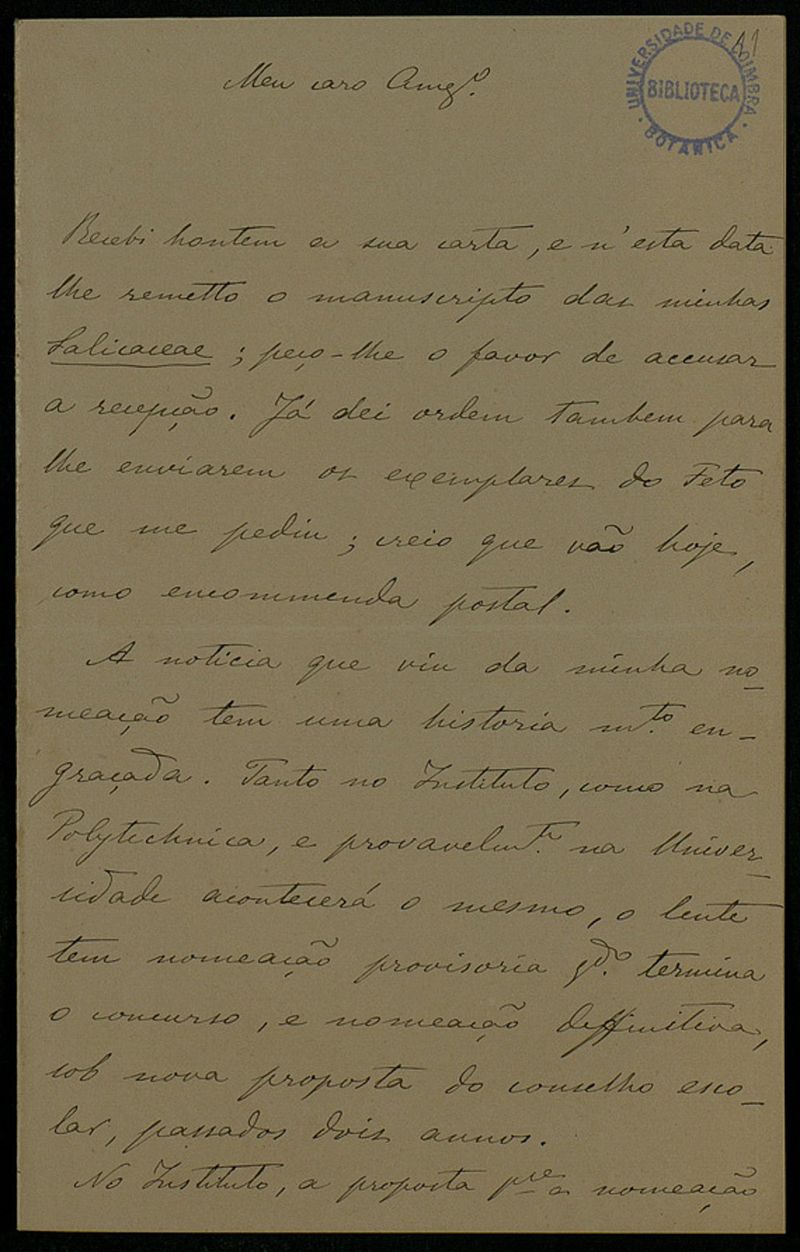 11
UNIVERSIDADE DE COIMBRA
BIBLIOTECA
BOTANICA
Meu caro Amgº.
Recebi hontem a sua carta, e n'esta data
lhe remetto o manuscripto das minhas
Salicaceae ; peço-lhe o favor de accusar
a recepção. Já dei ordem tambem para
lhe enviarem os exemplares do Feto
que me pediu ; creio que vão hoje,
como encommenda postal.
A noticia que viu da minha no-
meação tem uma historia m.to en-
graçada. Tanto no Instituto, como na
Polytechnica, e provavelm.te na Univer-
sidade acontecerá o mesmo, o lente
tem nomeação provisoria q.do termina
o concurso, e nomeação deffinitiva,
sob nova proposta do conselho esco-
lar, passados dois annos.
No Instituto, a proposta a nomeação